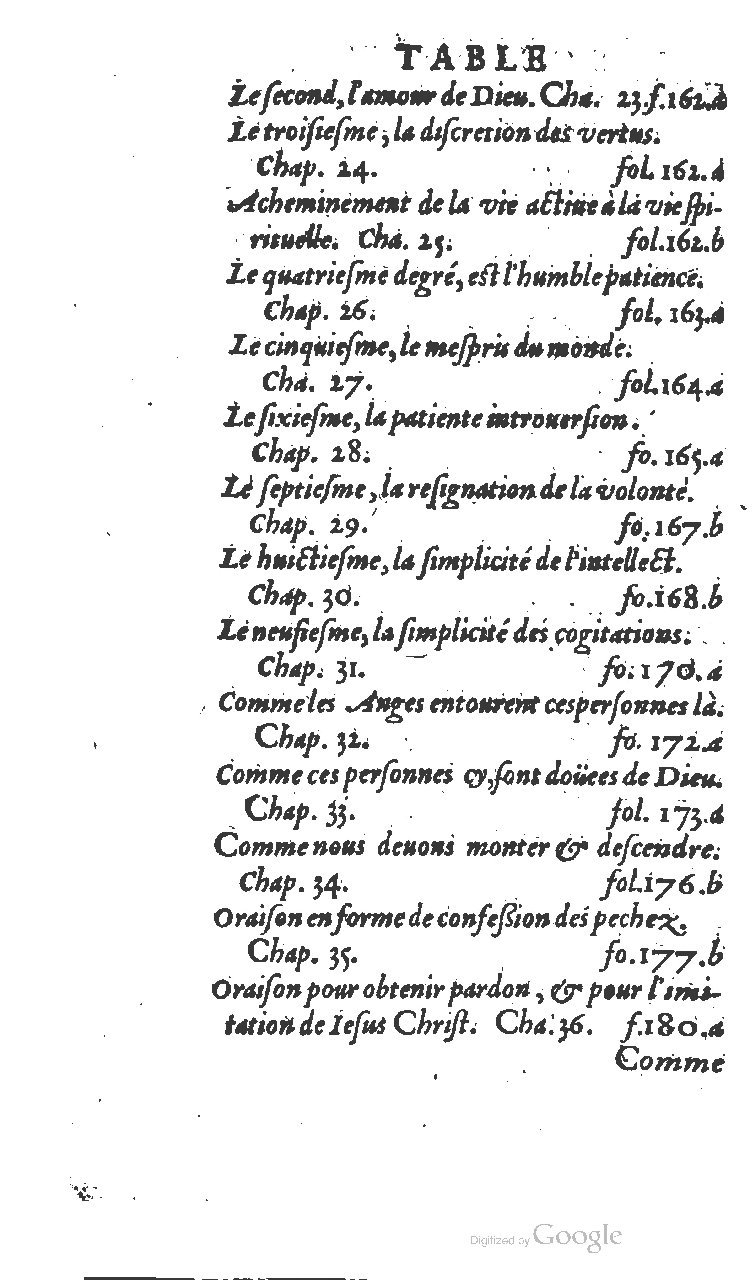 TABLE
Le ſecond, l'amour de Dieu. Cha. 23. f.162.a
Le troiſieſme, la diſcretion des vertus.
Chap. 24. fol. 162.a
Acheminement de la vie actiue à la vie ſpi-
rituelle. Cha. 25. fol.162.b
Le quatrieſme degré, eſt l'humble patience.
Chap. 26. fol. 163.a
Le cinquieſme, le meſpris du monde.
Cha. 27. fol.164.a
Le ſixieſme, la patiente introuerſion.
Chap. 28. fo. 165.a
Le ſeptieſme, la reſignation de la volonté.
Chap. 29. fo. 167.b
Le huictieſme, la ſimplicité de l'intellect.
Chap. 30. fo.168.b
Le neufieſme, la ſimplicité des cogitations.
Chap. 31. fo. 170.a
Comme les Anges entourent ces perſonnes là.
Chap. 32. fo. 172.a
Comme ces perſonnes cy, ſont doüees de Dieu.
Chap. 33. fol. 173.a
Comme nous deuons monter & deſcendre.
Chap. 34. fol.176.b
Oraiſon en forme de confeſſion des pechez.
Chap. 35. fo.177.b
Oraiſon pour obtenir pardon, & pour l'imi-
tation de Ieſus Chriſt. Cha. 36. f.180.a
Comme
Digitized by Google